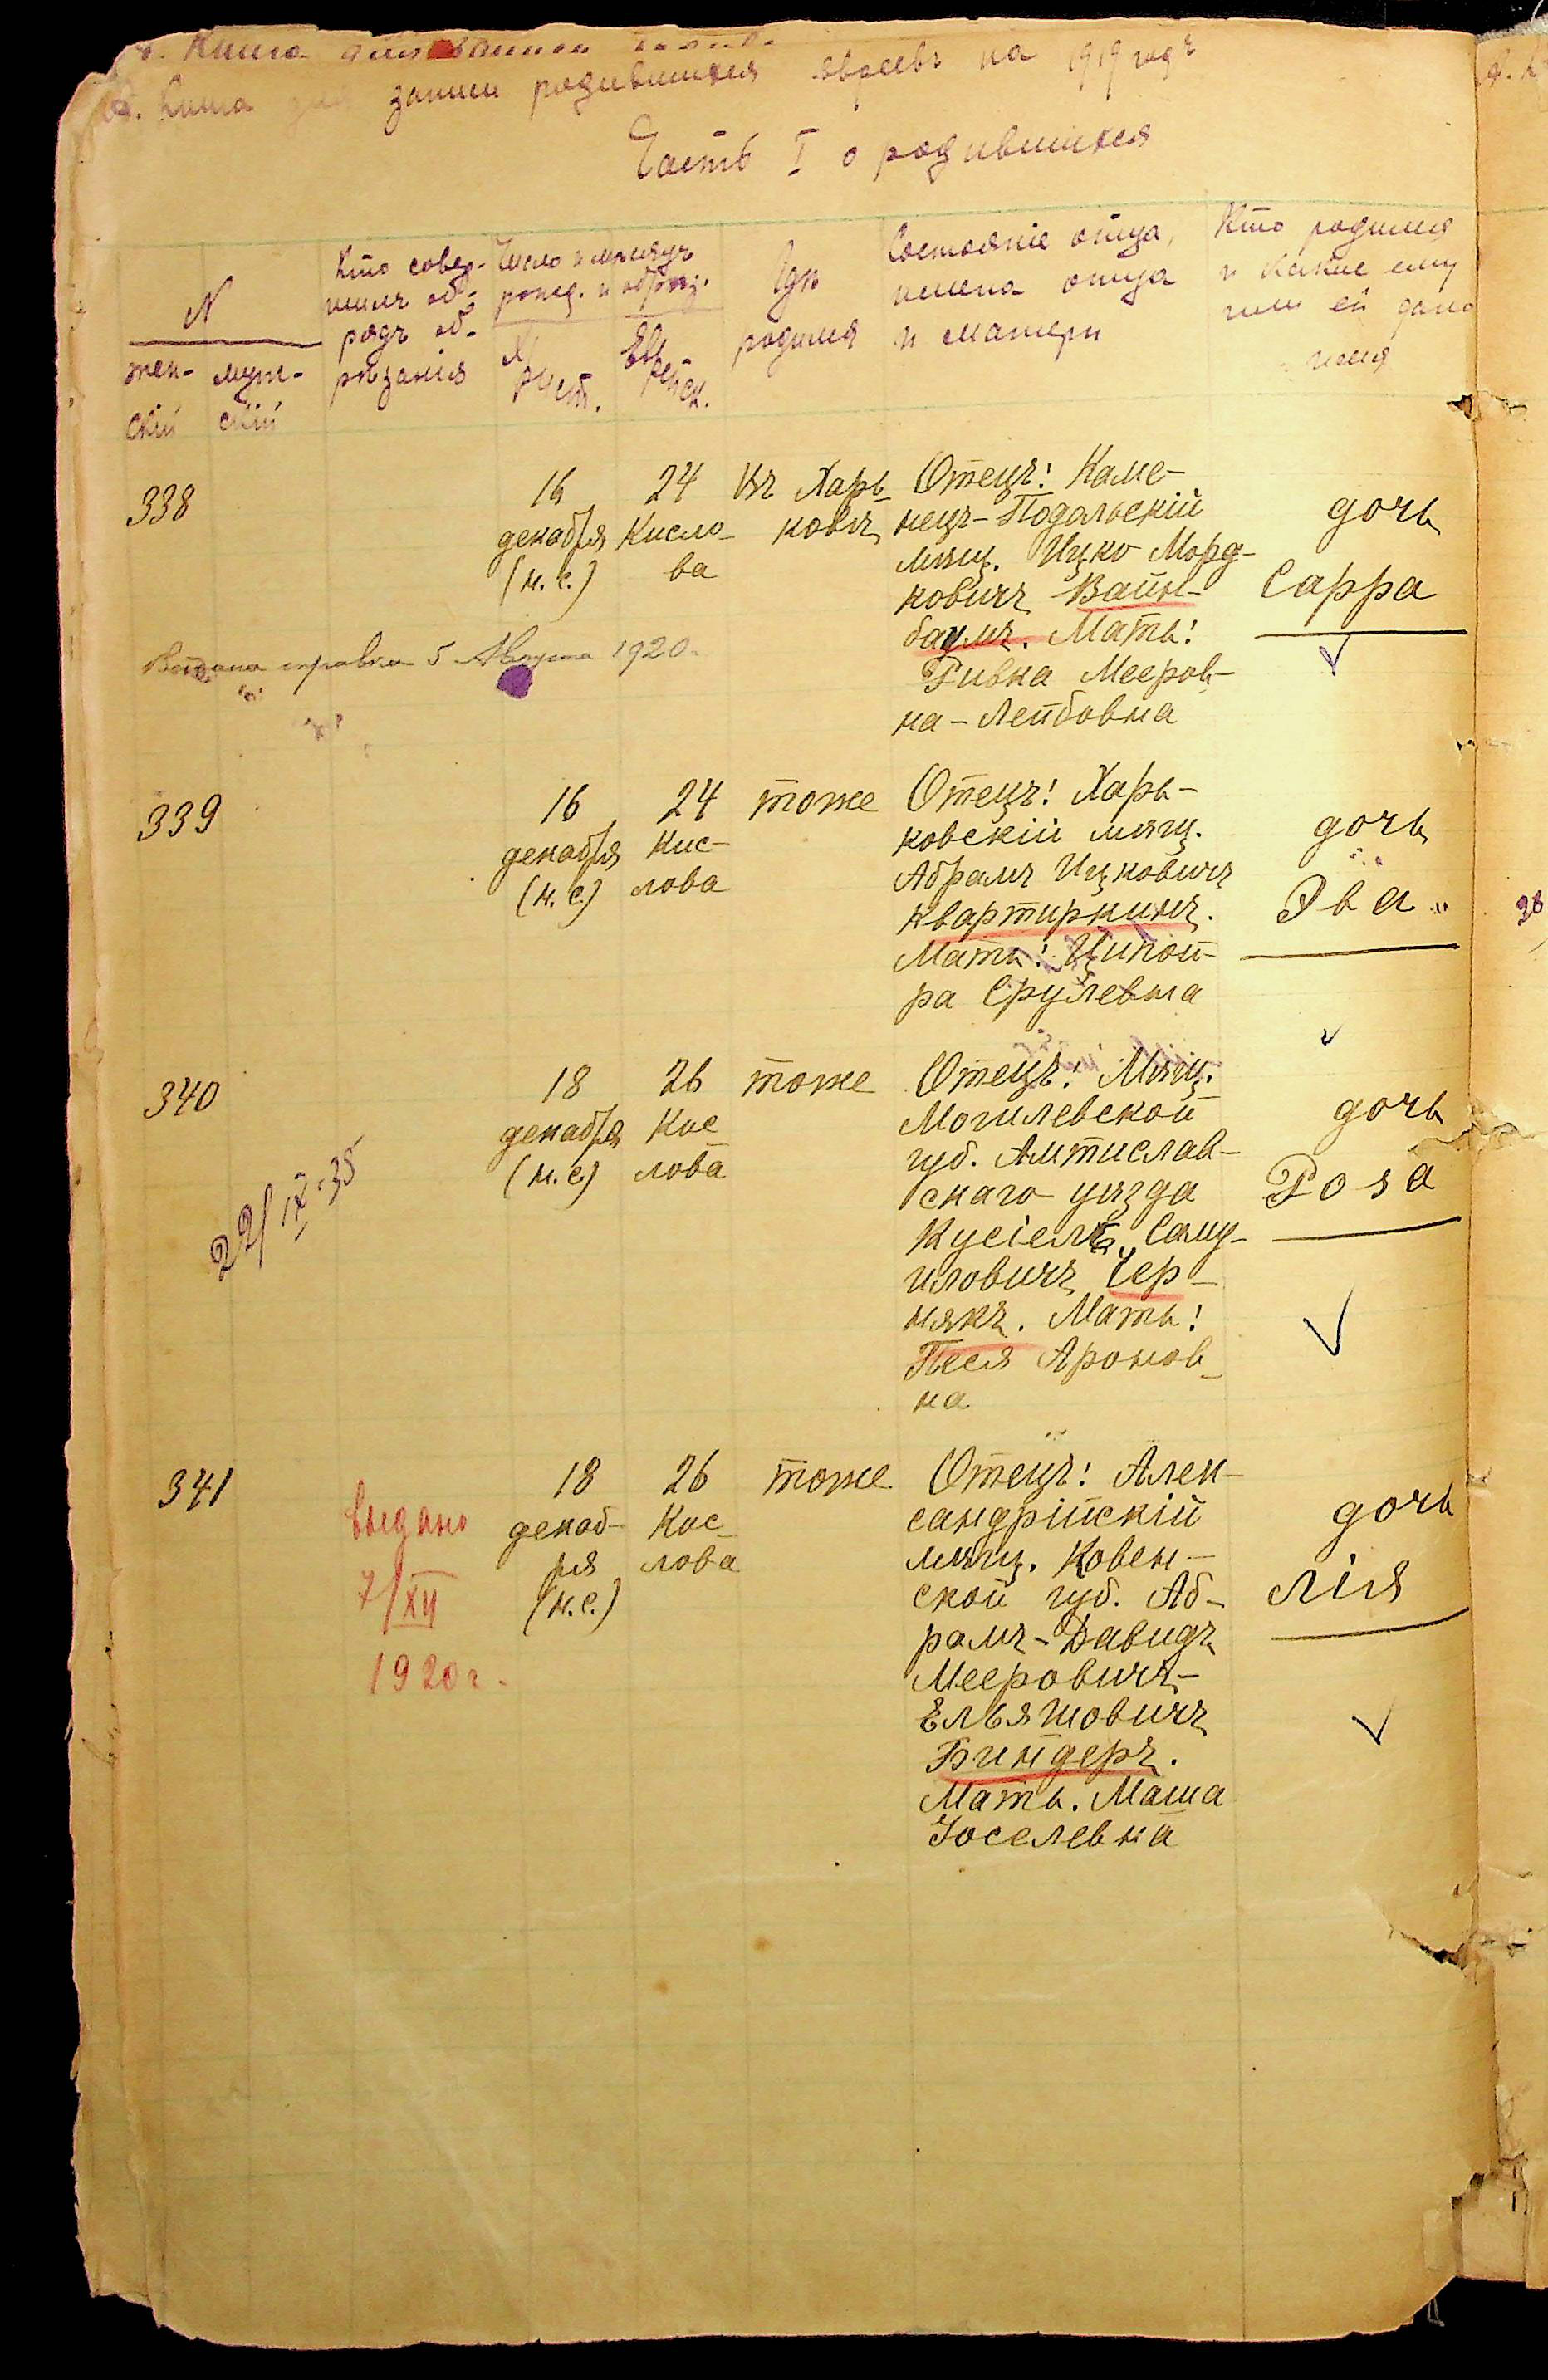 Книга для записи
Книга для записи родившихся евреевъ на 1919 годъ
Часть I о родившихся
N
жен-
скій
муж-
скій
Кто совер-
шилъ об-
рядъ об-
рѣзанія
Число и мѣсяцъ
рожд. и обрѣз.
Христ.
Еврейск.
Гдѣ
родился
Состояніе отца,
имена отца
и матери
Кто родился
и какие ему
или ей дано
имя
338
16
декабря
(н. с.)
24
Кисло-
ва
Въ Харь-
ковѣ
Отецъ: Каме-
нецъ-Подольскій
мѣщ. Ицко Морд-
ковичъ Вайн-
баумъ. Мать:
Ривка Мееров-
на-Лейбовна
дочь
Сарра
Выдана справка 5 Августа 1920.
339
16
декабря
(н. с.)
24
Кис-
лова
тоже
Отецъ: Харь-
ковскій мѣщ.
Абрамъ Ицковичъ
Квартиркинъ.
Мать: Ципой-
ра Срулевна
дочь
Эва
340
22/IX-35
18
декабря
(н. с.)
26
Кис-
лова
тоже
Отецъ: Мѣщ.
Могилевской
губ. Амтислав-
скаго уѣзда
Кусіель Саму-
иловичъ Чер-
някъ. Мать:
Песя Аронов-
на
дочь
Роза
341
выдано
7/XII
1920 г.
18
декаб-
ря
(н. с.)
26
Кис-
лова
тоже
Отецъ: Алек-
сандрійскій
мѣщ. Ковен-
ской губ. Аб-
рамъ-Давидъ
Мееровичъ-
Ельяшовичъ
Биндеръ.
Мать. Маша
Іоселевна
дочь
Лія
38